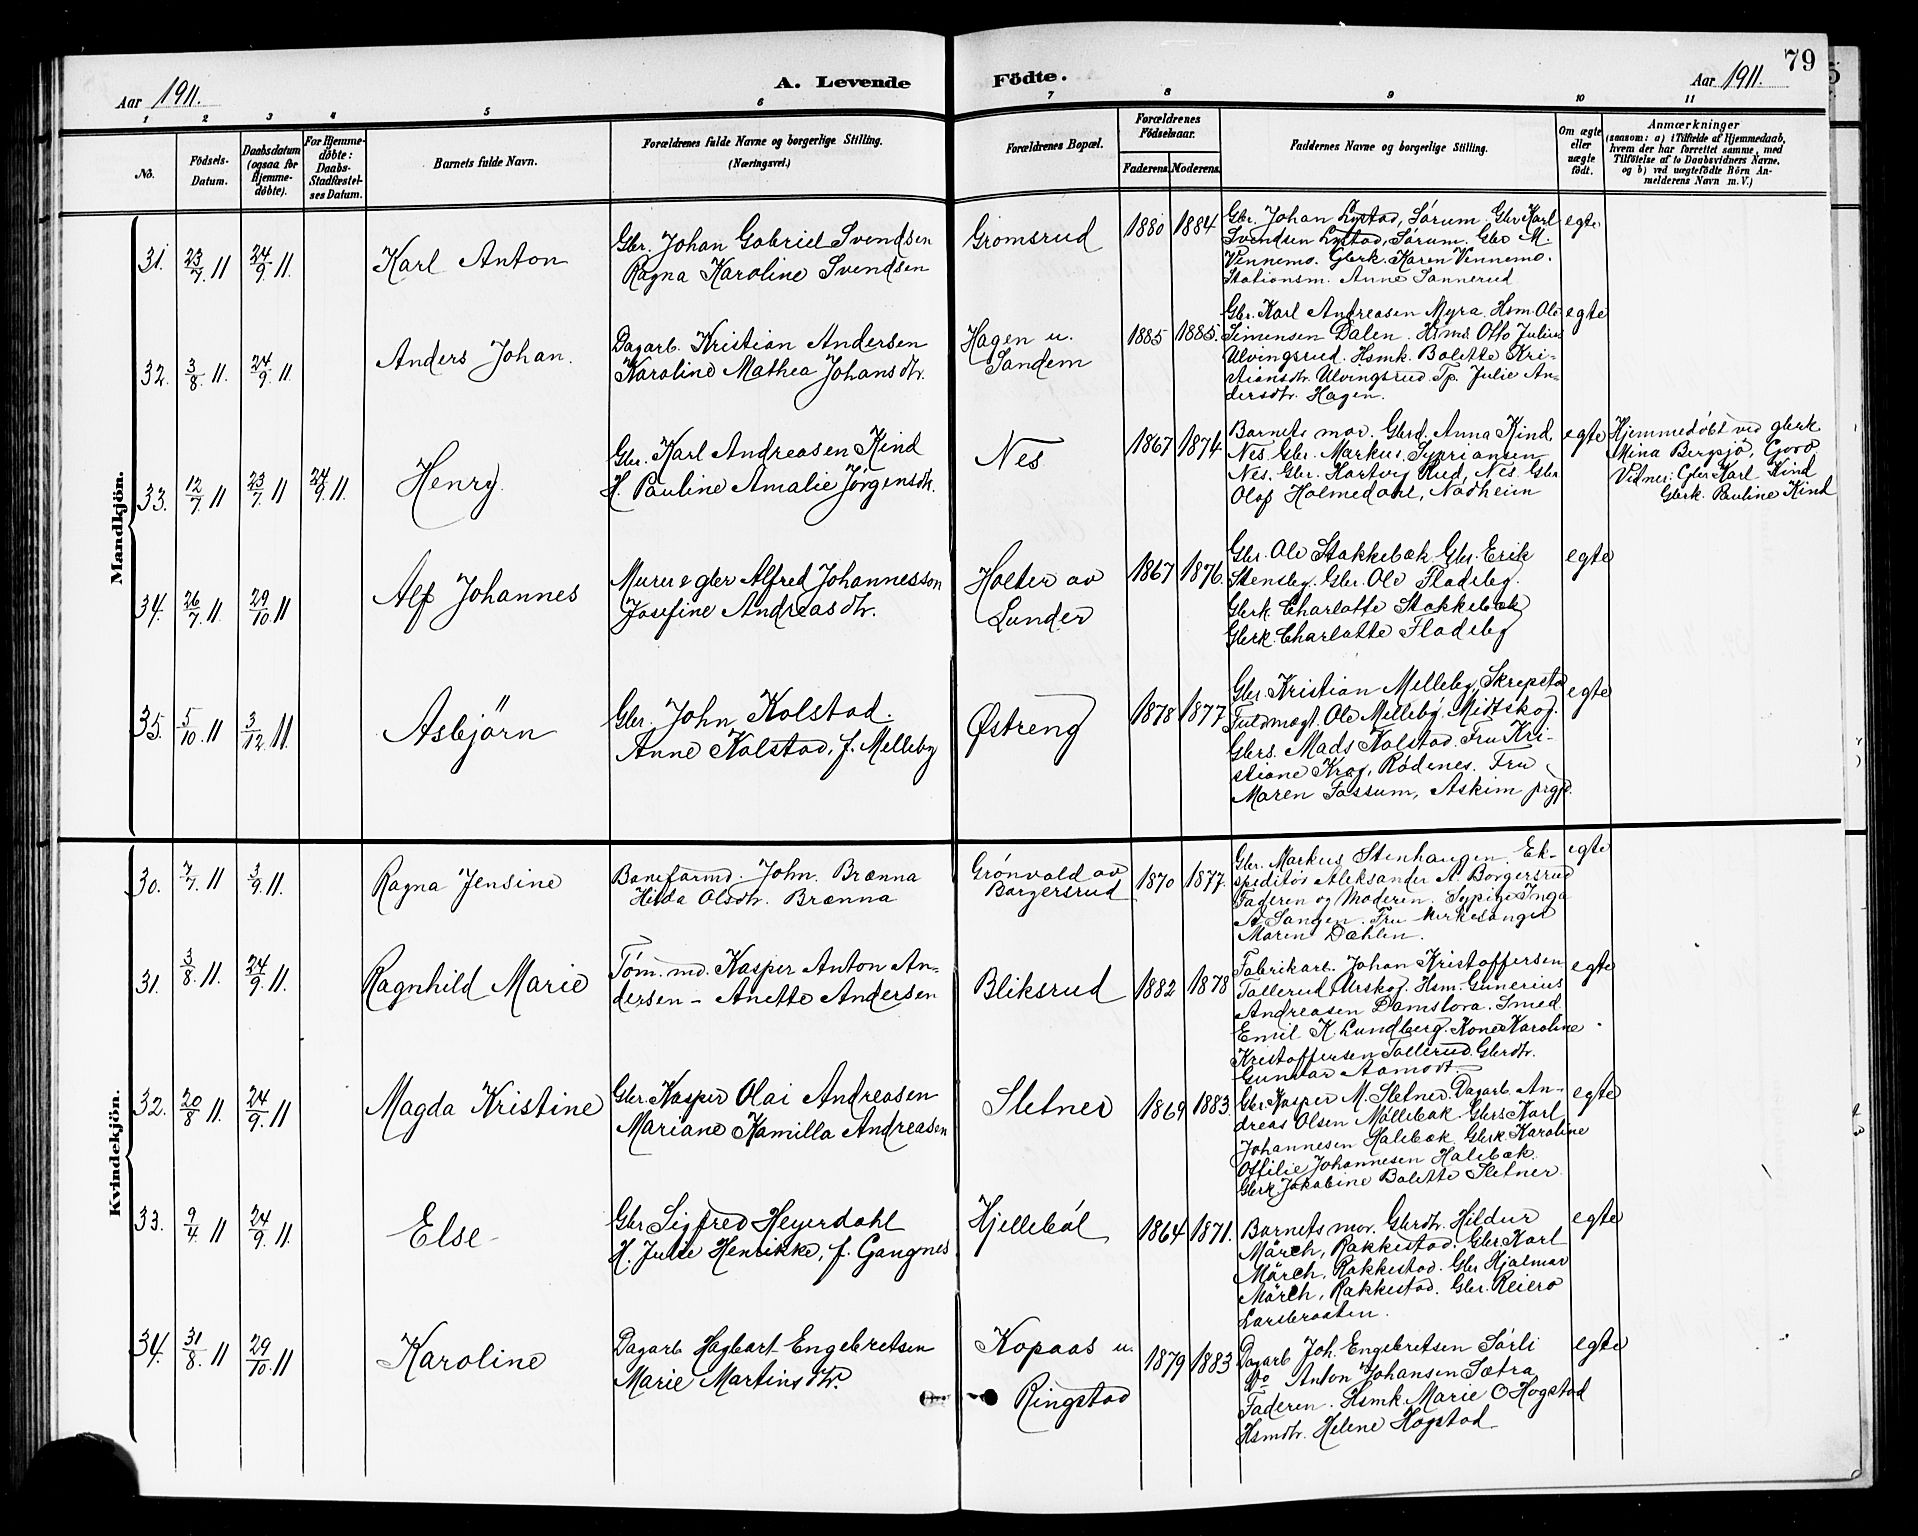 79
Aar 1911.
A. Levende Födte.
Aar 1911.
1 2 3 4 5 6 7 8 9 10 11
No.
Födsels-
Datum.
Daabsdatum
(ogsaa for
Hjemme-
döbte).
For Hjemme-
döbte:
Daabs-
Stadfæstel-
ses Datum.
Barnets fulde Navn.
Forældrenes fulde Navne og borgerlige Stilling.
(Næringsvei.)
Forældrenes Bopæl.
Forældrenes
Födselsaar.
Faderens. Moderens.
Faddernes Navne og borgerlige Stilling.
Om ægte
eller
uægte
födt.
Anmærkninger
(saasom: a) i Tilfælde af Hjemmedaab,
hvem der har forrettet samme, med
Tilföielse af to Daabsvidners Navne,
og b) ved uægtefödte Börn An-
melderens Navn m. V.)
Mandkjön.
31. 23/7 11 24/9 11.
Karl Anton
Gbr. Johan Gabriel Svendsen
Ragna Karoline Svendsen
Gromsrud
1880 1884
Gbr. Johan Lystad, Sørum. Gbr Karl
Svendsen Lystad, Sørum. Gbr M.
Vennemo. Gbrk. Karen Vennemo.
Stationsm. Anne Sannerud
egte
32. 3/8 11. 24/9 11.
Anders Johan.
Dagarb. Kristian Andersen
Karoline Mathea Johansdtr.
Hagen u.
Sandem
1885 1885.
Gbr. Karl Andreasen Myra. Hsm. Ole
Simensen Dalen. Hsms Otto Julius
Ulvingsrud. Hsmk. Bolette Kri-
stiansdtr. Ulvingsrud. Tp. Julie An-
dersdtr. Hagen.
egte
33. 12/7 11 23/7 11 24/9 11.
Henry.
Gbr. Karl Andreasen Kind
H. Pauline Amalie Jørgensdtr.
Nes
1867 1874
Barnets mor. Gbrd. Anna Kind,
Nes. Gbr. Markus Sypriansen
Nes. Gbr. Hartvig Rud, Nes. Gbr
Olaf Holmedahl, Nadheim
egte
Hjemmedøbt ved gbrk
Mina Bergsjø,
Vidner: Gbr Karl Kind
Gbrk. Pauline Kind
34. 26/7 11. 29/10 11
Alf Johannes
Murer & gbr Alfred Johannesson
Josefine Andreasdtr.
Holter av
Lunder
1867 1876.
Gbr. Ole Stakkebæk Gbr. Erik
Stensby. Gbr. Ole Fladeby.
Gbrk. Charlotte Stokkebæk
Gbrk. Charlotte Fladeby
egte
35. 5/10 11 3/12 11.
Asbjörn
Gbr. John Kolstad.
Anne Kolstad, f. Melleby
Østreng
1878 1877
Gbr. Kristian Melleby, Skrepsta
Fuldmægt. Ole Melleby, Midtskog.
Gbrs. Mads Kolstad. Fru Kri-
stiane Krog, Rødenes. Fru
Maren Fossum, Askim prgjd.
egte
Kvindekjön.
30. 7/7 11 3/9 11.
Ragna Jensine
Baneformd. John. Brænna
Hilda Olsdtr. Brænna
Grønvold av
Borgersrud
1870 1877.
Gbr. Markus Stenhaugen. Ek-
speditør Aleksander A. Borgersrud
Faderen og Moderen. Sypige Inga
A. Sangen. Fru kirkesanger
Maren Dæhlen.
egte
31. 3/8 11. 24/9 11.
Ragnhild Marie
Tøm.md. Kasper Anton An-
dersen - Anette Andersen
Bliksrud
1882 1878
Fabrikarb. Johan Kristoffersen
Tallerud Urskog. Hsm. Gunerius
Andreasen Damstova. Smed
Emil K. Lundberg. Kone Karoline
Kristoffersen Tallerud. Gbrdtr.
Gunvor Aamodt
egte
32. 20/8 11. 24/9 11
Magda Kristine
Gbr. Kasper Olai Andreasen
Mariane Kamilla Andreasen
Sletner
1869 1883.
Gbr. Kasper M. Sletner. Dagarb. An-
dreas Olsen Møllebæk. Gbrs Karl
Johannesen Halebæk. Gbrk Karoline
Ottilie Johannesen Halebæk.
Gbrk Jakobine Bolette Sletner
egte
33. 9/4 11 24/9 11.
Else
Gbr Sigfred Heyerdahl
H. Julie Henrikke, f. Gangnes
Hjellebøl
1864 1871.
Barnets mor. Gbrdtr. Hildur
Mörch, Rakkestad. Gbr. Karl
Mörch, Rakkestad. Gbr Hjalmar
Mörch, Rakkestad. Gbr.
Larsbraaten.
egte
34. 31/8 11 29/10 11
Karoline
Dagarb Hagbart Engebretsen
Marie Martinsdtr.
Kopaas u.
Ringstad
1879 1883
Dagarb Joh. Engebretsen Sørli
Do Anton Johansen Sætra
Faderen. Hsmk. Marie O Hogstad
Hsmdtr. Helene Hogstad
egte